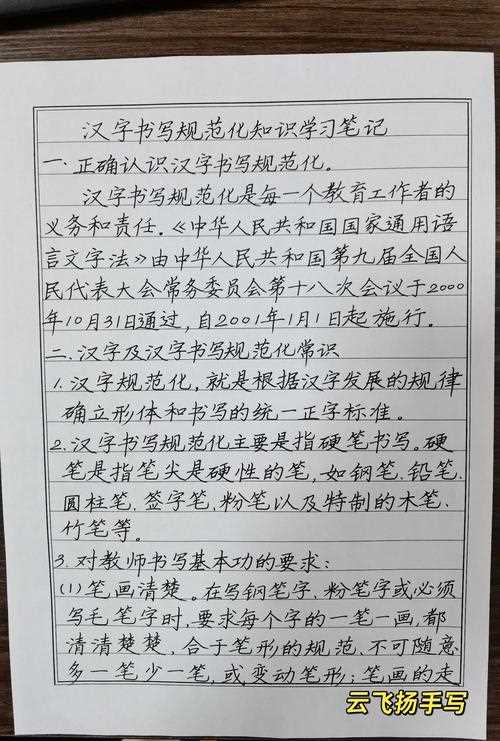 汉字书写规范化知识学习笔记
一、正确认识汉字书写规范化。
汉字书写规范化是每一个教育工作者的
义务和责任.《中华人民共和国国家通用语
言文字法》由中华人民共和国第九届全国人
民代表大会常务委员会第十八次会议于2000
年10月31日通过,自2001年1月1日起施行。
二、汉字及汉字书写规范化常识
1.汉字规范化,就是根据汉字发展的规律
确立形体和书写的统一正字标准。
2.汉字书写规范化主要是指硬笔书写。硬
笔是指笔尖是硬性的笔,如钢笔、铅笔、
圆柱笔、签字笔、粉笔以及特制的木笔、
竹笔等。
3.对教师书写基本功的要求:
(1)笔画清楚。在写钢笔字、粉笔字或必须
写毛笔字时,要求每个字的一笔一画,都
清清楚楚,合于笔形的规范,不可随意
多一笔少一笔,或变动笔形;笔画的走
云飞扬手写